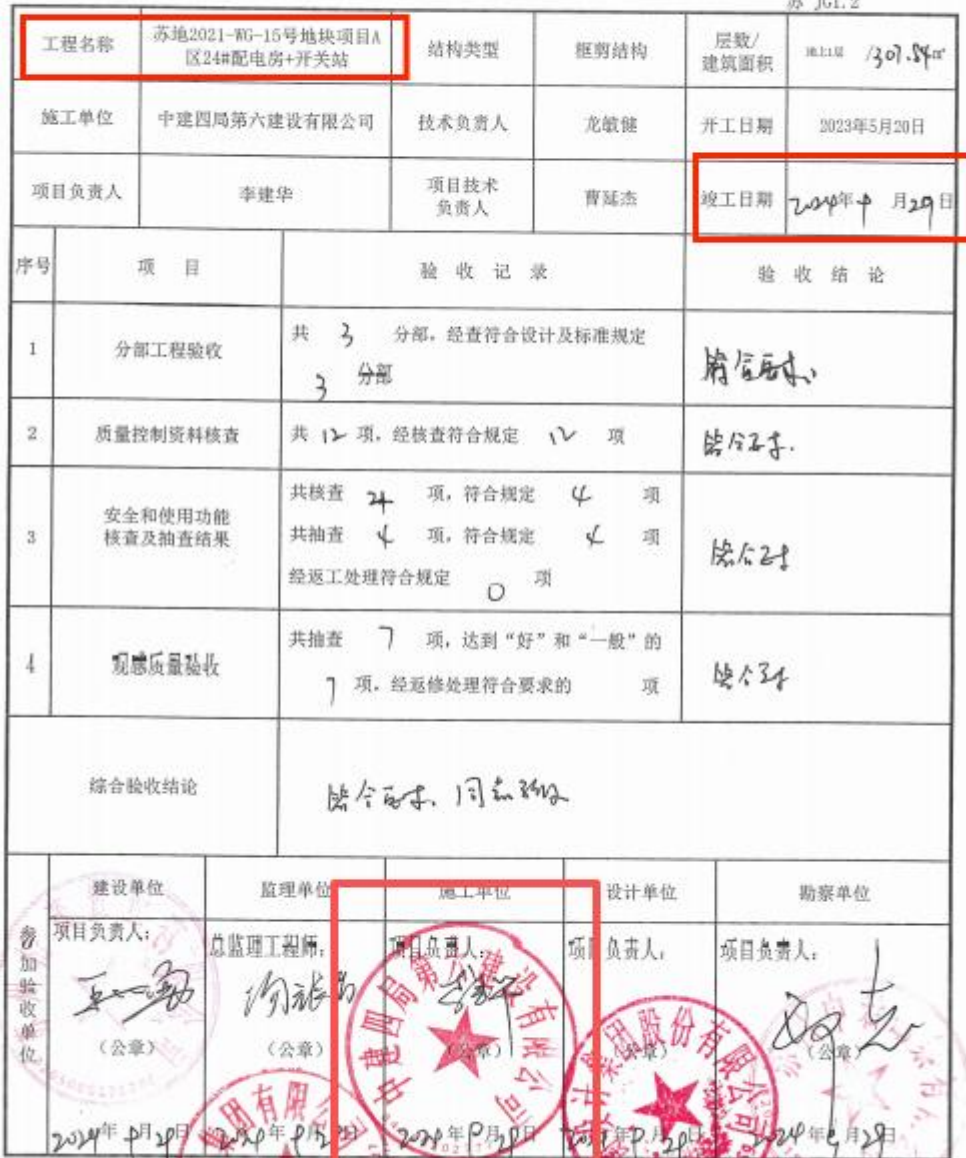 苏 JG1.2
工程名称 苏地2021-WG-15号地块项目A区24#配电房+开关站 结构类型 框剪结构 层数/建筑面积 地上1层 /307.84㎡
施工单位 中建四局第六建设有限公司 技术负责人 龙敏健 开工日期 2023年5月20日
项目负责人 李建华 项目技术负责人 曹延杰 竣工日期 2024年 月29日
序号 项 目 验 收 记 录 验 收 结 论
1 分部工程验收 共 3 分部,经查符合设计及标准规定
3 分部
符合要求
2 质量控制资料核查 共 12 项,经核查符合规定 12 项
符合要求.
3 安全和使用功能核查及抽查结果 共核查 项,符合规定 4 项
共抽查 4 项,符合规定 4 项
经返工处理符合规定 0 项
符合要求
4 观感质量验收 共抽查 7 项,达到“好”和“一般”的
7 项,经返修处理符合要求的 项
符合要求
综合验收结论 符合要求、同意验收
参加验收单位
建设单位 监理单位 施工单位 设计单位 勘察单位
项目负责人: 总监理工程师: 项目负责人: 项目负责人: 项目负责人:
中建四局第六建设有限公司
集团股份有限公司
(公章) (公章) (公章) (公章) (公章)
2024年 月29日 年 月29日 2024年 月29日 年 月29日 2024年 月29日